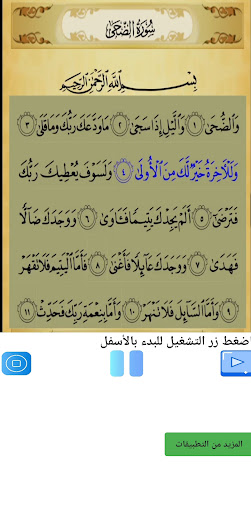 سُورَةُ الضُّحَىٰ
بِسْمِ اللَّهِ الرَّحْمَٰنِ الرَّحِيمِ
وَالضُّحَىٰ ١ وَاللَّيْلِ إِذَا سَجَىٰ ٢ مَا وَدَّعَكَ رَبُّكَ وَمَا قَلَىٰ ٣
وَلَلْآخِرَةُ خَيْرٌ لَّكَ مِنَ الْأُولَىٰ ٤ وَلَسَوْفَ يُعْطِيكَ رَبُّكَ
فَتَرْضَىٰ ٥ أَلَمْ يَجِدْكَ يَتِيمًا فَآوَىٰ ٦ وَوَجَدَكَ ضَالًّا
فَهَدَىٰ ٧ وَوَجَدَكَ عَائِلًا فَأَغْنَىٰ ٨ فَأَمَّا الْيَتِيمَ فَلَا تَقْهَرْ
٩ وَأَمَّا السَّائِلَ فَلَا تَنْهَرْ ١٠ وَأَمَّا بِنِعْمَةِ رَبِّكَ فَحَدِّثْ ١١
اضغط زر التشغيل للبدء بالأسفل
المزيد من التطبيقات